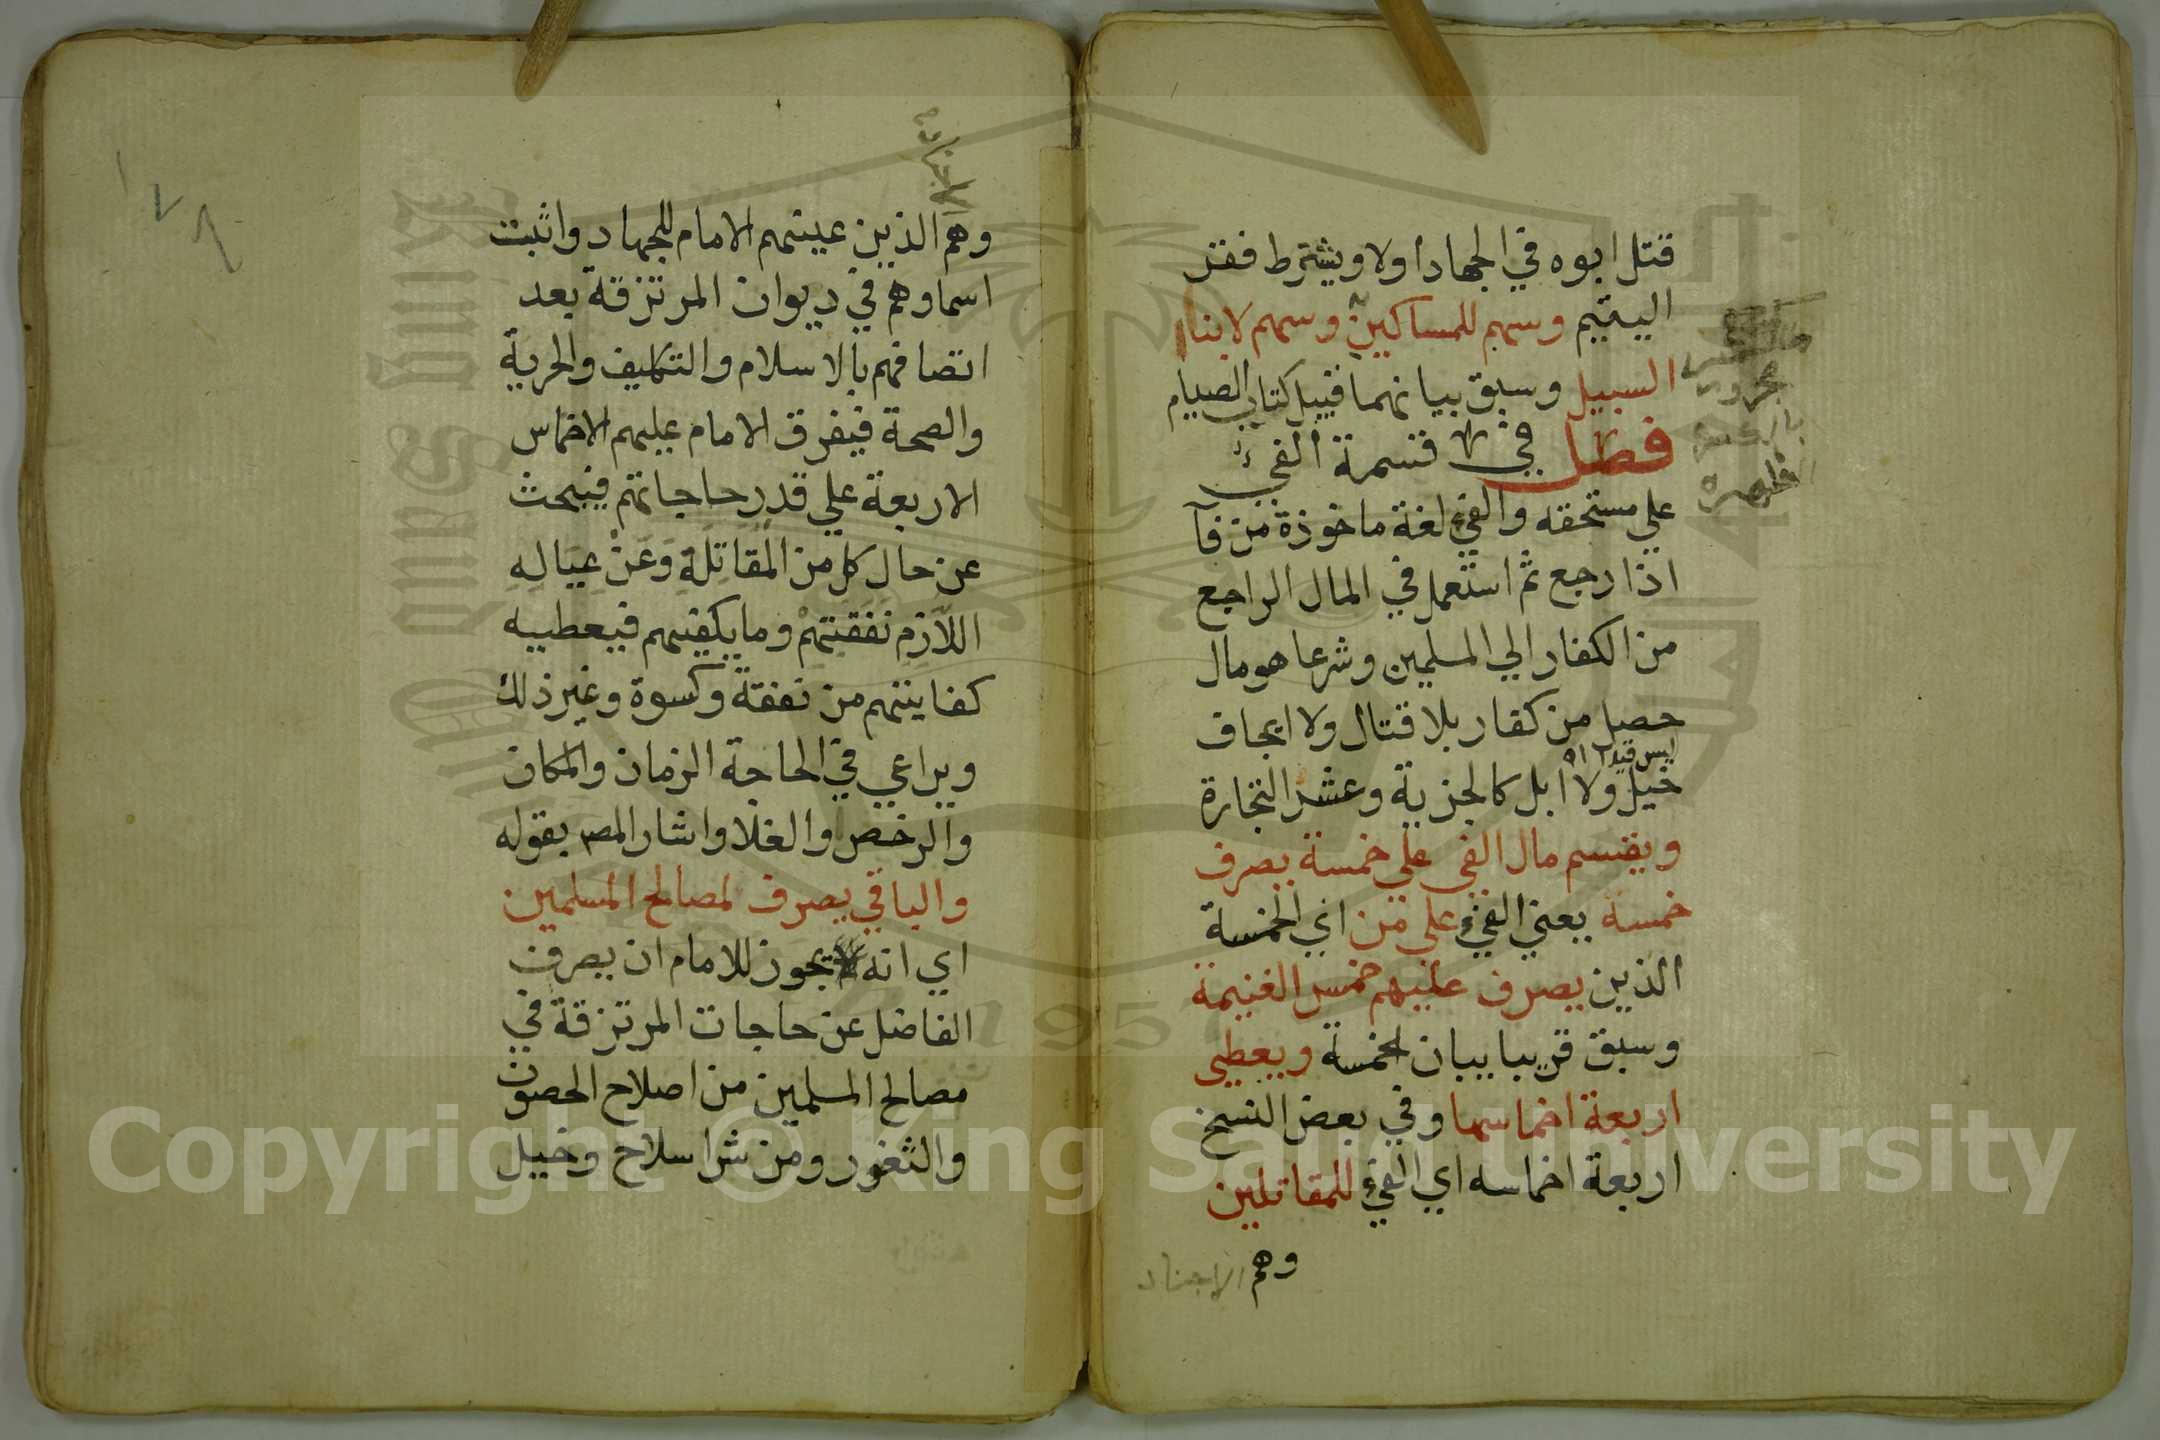 قتل ابوه في الجهاد اولا ويشترط فقر
اليتيم وسهم للمساكين وسهم لابنا
السبيل وسبق بيانهما قبيل كتاب الصيام
فصل في قسمة الفي
علي مستحقه والفيء لغة ماخوذة من فآ
اذا رجع ثم استعمل في المال الراجع
من الكفار الي المسلمين وشرعا هو مال
حصل من كفار بلا قتال ولا ايجاف
ليس قيدا
خيل ولا ابل كالجزية وعشر التجارة
ويقسم مال الفي علي خمسة يصرف
خمسه يعني الفيء علي من اي الخمسة
الذين يصرف عليهم خمس الغنيمة
وسبق قريبا بيان الخمسة ويعطي
اربعة اخماسها وفي بعض النسخ
اربعة اخماسه اي الفيء للمقاتلين
وهم الاجناد
الاجناد
وهم الذين عينهم الامام للجهاد واثبت
اسماوهم في ديوان المرتزقة بعد
اتصافهم بالاسلام والتكليف والحرية
والصحة فيفرق الامام عليهم الاخماس
الاربعة علي قدر حاجاتهم فيبحث
عن حال كل من المقاتلة وعن عياله
اللازم نفقتهم وما يكفيهم فيعطيه
كفايتهم من نفقة وكسوة وغير ذلك
ويراعي في الحاجة الزمان والمكان
والرخص والغلا واشار المصر بقوله
والباقي يصرف لمصالح المسلمين
اي انه يجوز للامام ان يصرف
الفاضل عن حاجات المرتزقة في
مصالح المسلمين من اصلاح الحصون
والثغور ومن شرا سلاح وخيل
Copyright © King Saud University
1957